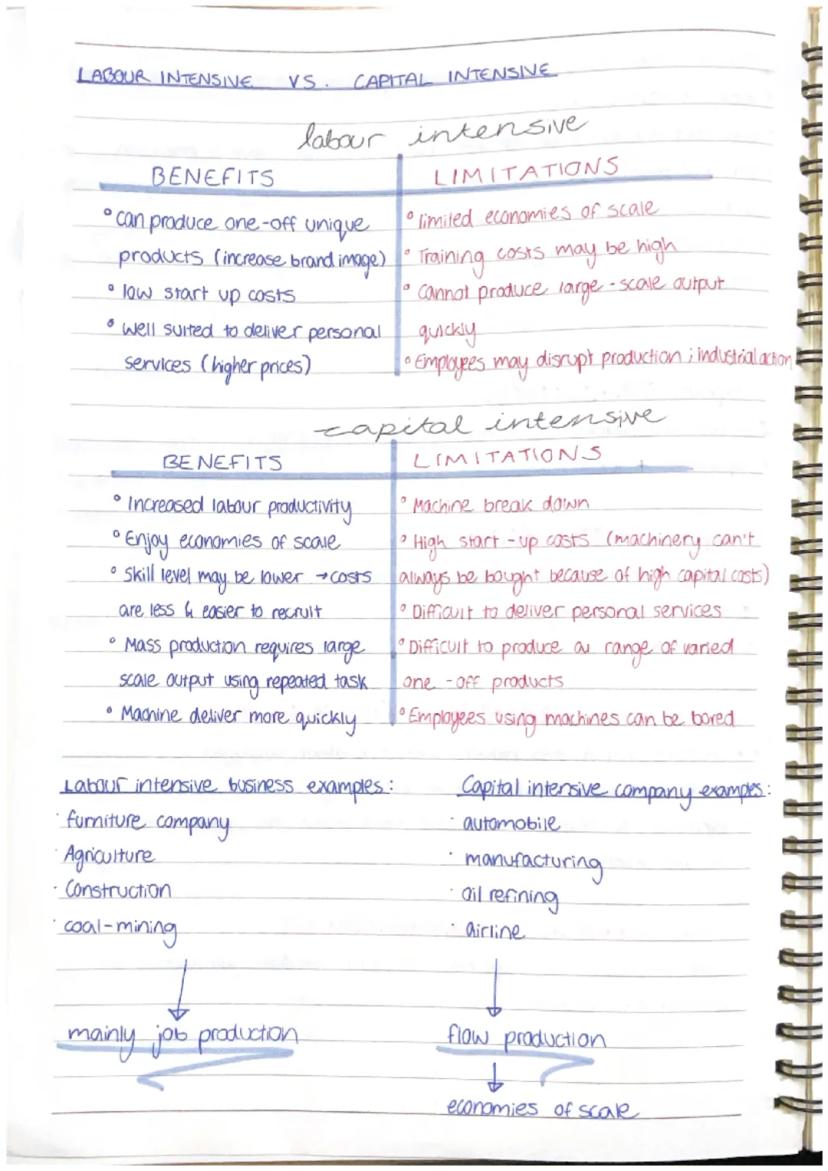 LABOUR INTENSIVE VS. CAPITAL INTENSIVE
labour intensive
BENEFITS
° can produce one-off unique
products (increase brand image)
° low start up costs
° Well suited to deliver personal
services (higher prices)
LIMITATIONS
° limited economies of scale
° Training costs may be high
° Cannot produce large-scale output
quickly
° Employees may disrupt production ; industrial action
capital intensive
BENEFITS
° Increased labour productivity
° Enjoy economies of scale
° Skill level may be lower → costs
are less & easier to recruit
° Mass production requires large
scale output using repeated task
° Machine deliver more quickly
LIMITATIONS
° Machine break down
° High start-up costs (machinery can't
always be bought because of high capital costs)
° Difficult to deliver personal services
° Difficult to produce a range of varied
one-off products
° Employees using machines can be bored
Labour intensive business examples:
· furniture company
· Agriculture
· Construction
· coal-mining
mainly job production
Capital intensive company examples:
· automobile
· manufacturing
· oil refining
· airline
flow production
economies of scale